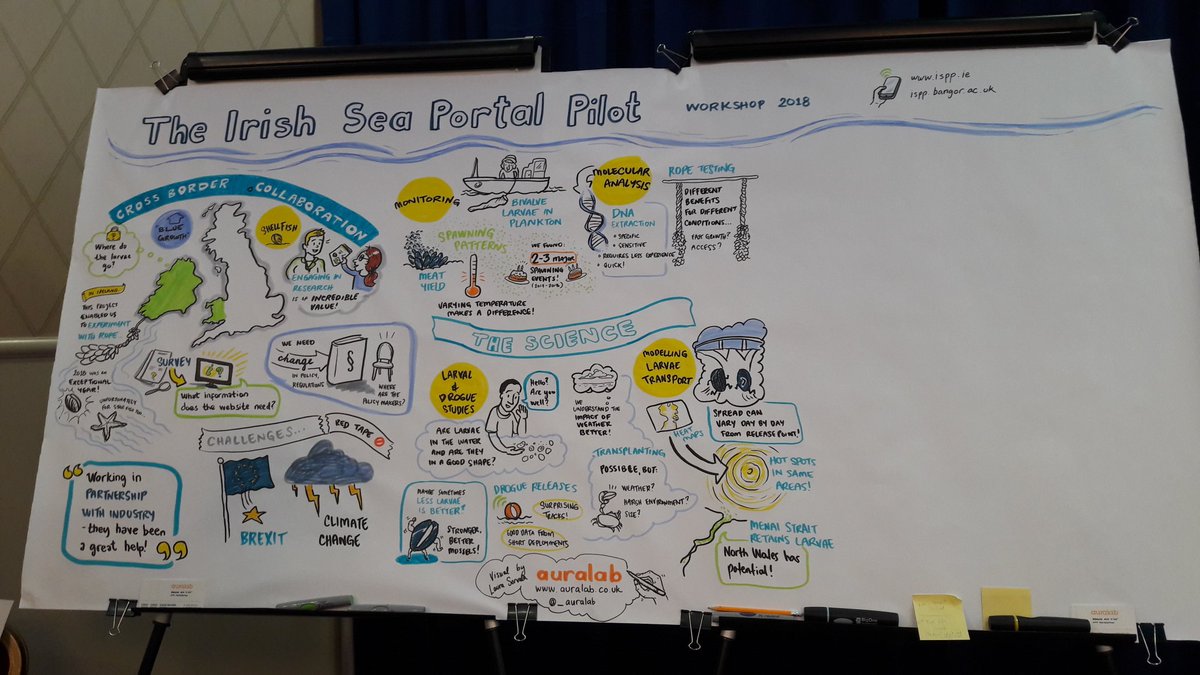 The Irish Sea Portal Pilot
WORKSHOP 2018
www.ispp.ie
ispp.bangor.ac.uk
CROSS BORDER COLLABORATION
Where do
the larvae
go?
BLUE
GROWTH
SHELLFISH
ENGAGING IN
RESEARCH
IS of INCREDIBLE
VALUE!
IN IRELAND
THIS PROJECT
ENABLED US
TO EXPERIMENT
WITH ROPE
2018 WAS AN
EXCEPTIONAL
YEAR!
UNFORTUNATELY
FOR STARFISH TOO...
SURVEY
What information
does the website need?
WE NEED
change
IN POLICY,
REGULATIONS
§
WHERE
ARE THE
POLICY MAKERS?
CHALLENGES...
RED TAPE
BREXIT
CLIMATE
CHANGE
Working in
PARTNERSHIP
WITH INDUSTRY
- they have been
a great help!
MONITORING
BIVALVE
LARVAE IN
PLANKTON
SPAWNING
PATTERNS
MEAT
YIELD
WE FOUND:
2-3 MAJOR
SPAWNING
EVENTS!
VARYING TEMPERATURE
MAKES A DIFFERENCE!
MOLECULAR
ANALYSIS
DNA
EXTRACTION
• SPECIFIC
• SENSITIVE
• REQUIRES LESS EXPERIENCE
• QUICK!
ROPE TESTING
DIFFERENT
BENEFITS
FOR DIFFERENT
CONDITIONS...
EASY GROWTH?
ACCESS?
THE SCIENCE
LARVAL
&
DROGUE
STUDIES
Hello?
Are you
well?
ARE LARVAE
IN THE WATER
AND ARE THEY
IN A GOOD SHAPE?
WE
UNDERSTAND THE
IMPACT OF
WEATHER
BETTER!
MODELLING
LARVAE
TRANSPORT
HEAT MAPS
SPREAD CAN
VARY DAY BY DAY
FROM RELEASE POINT!
HOT SPOTS
IN SAME
AREAS!
TRANSPLANTING
POSSIBLE, BUT:
WEATHER?
HARSH ENVIRONMENT?
SIZE?
MAYBE SOMETIMES
LESS LARVAE
IS BETTER?
STRONGER,
BETTER
MUSSELS!
DROGUE RELEASES
SURPRISING
TRACKS!
GOOD DATA FROM
SHORT DEPLOYMENTS
MENAI STRAIT
RETAINS LARVAE
North Wales has
potential!
Visual by
Laura
auralab
www.auralab.co.uk
@_auralab
auralab
auralab